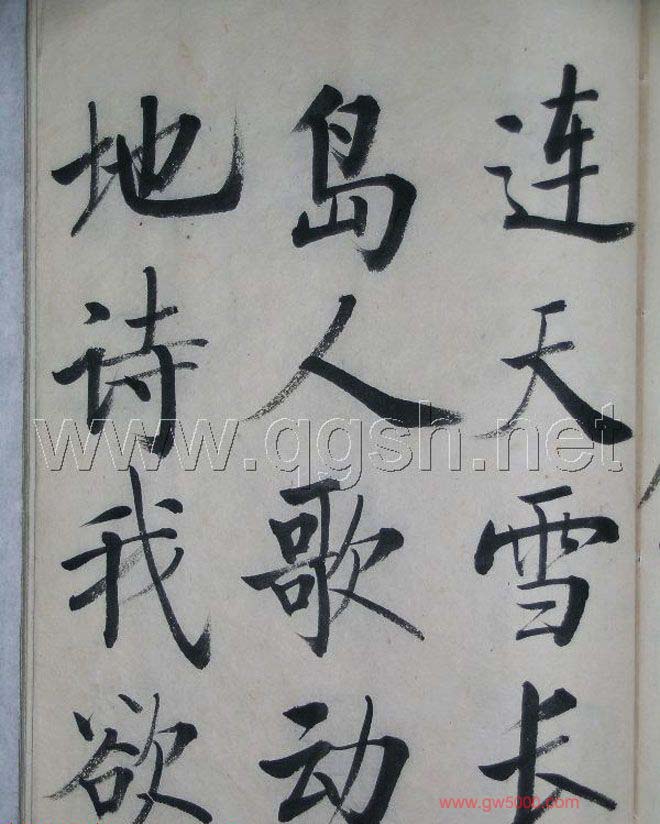 连天雪长
岛人歌动
地诗我欲
www.qgsh.net
www.gw5000.com